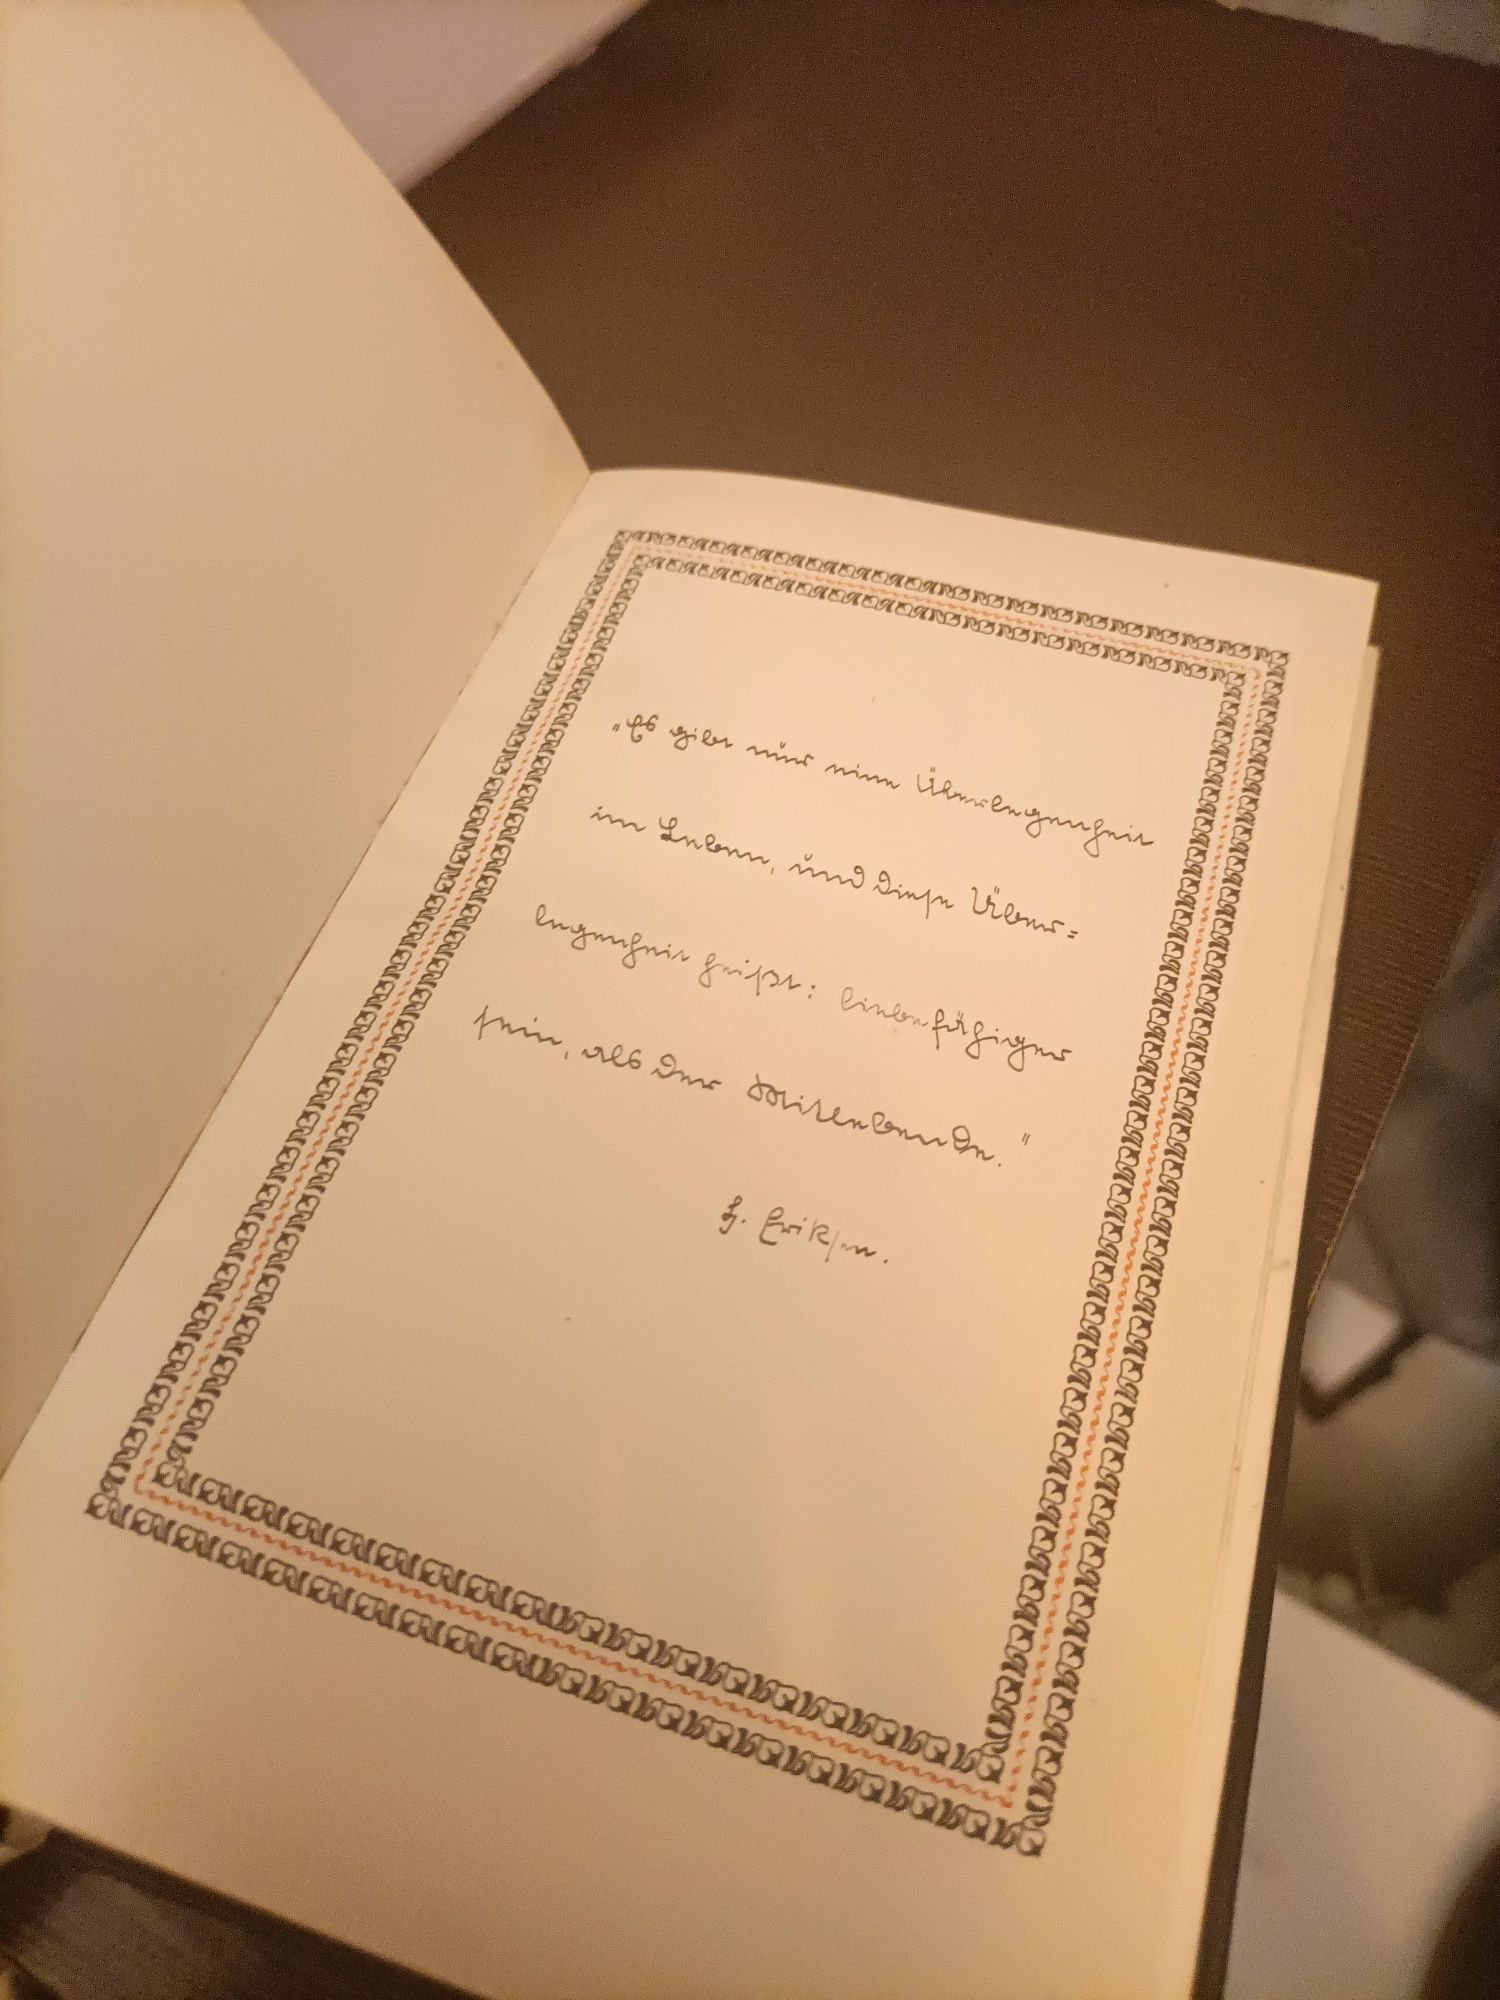 „Es gibt nur eine Überlegenheit
im Leben, und diese Über=
legenheit heißt: liebefähiger
sein, als der Mitlebende."
H. Eriksen.